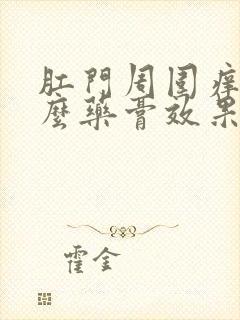 肛門周圍痒
麼藥膏效果
霍金